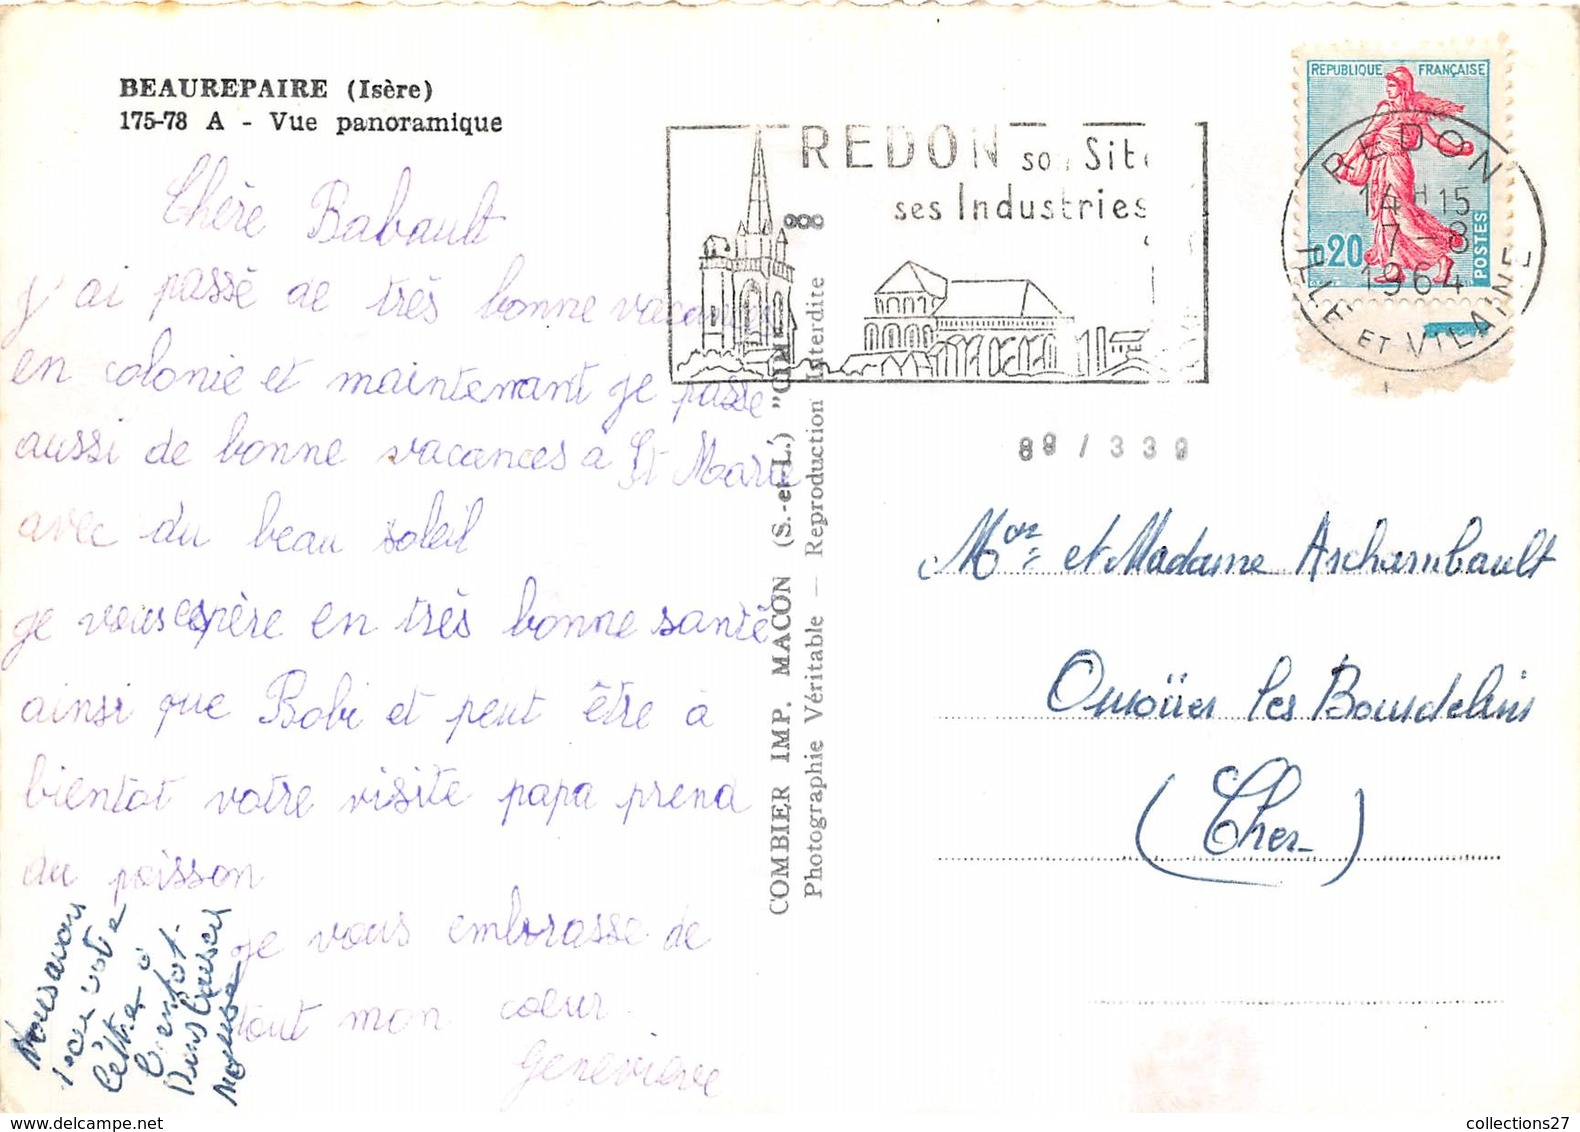 BEAUREPAIRE (Isère)
175-78 A - Vue panoramique
Chère Babault
J'ai passé de très bonne vacances
en colonie et maintenant je passe
aussi de bonne vacances à St Marie
avec du beau soleil
je vous espère en très bonne santé
ainsi que Bobi et peut être à
bientot votre visite papa prend
du poisson
je vous embrasse de
tout mon coeur
Geneviève
Nous avons
reçu votre
lettre à
bientot.
Bons baisers
COMBIER IMP. MACON (S.-et-L.) "CIM"
Photographie Véritable — Reproduction Interdite
REDON son Site
ses Industries
REPUBLIQUE FRANÇAISE
0,20
POSTES
REDON
14 H 15
7 - 8
1964
ILLE ET VILAINE
89 / 339
Mor et Madame Archambault
Ourouer les Bourdelins
(Cher)
collections27